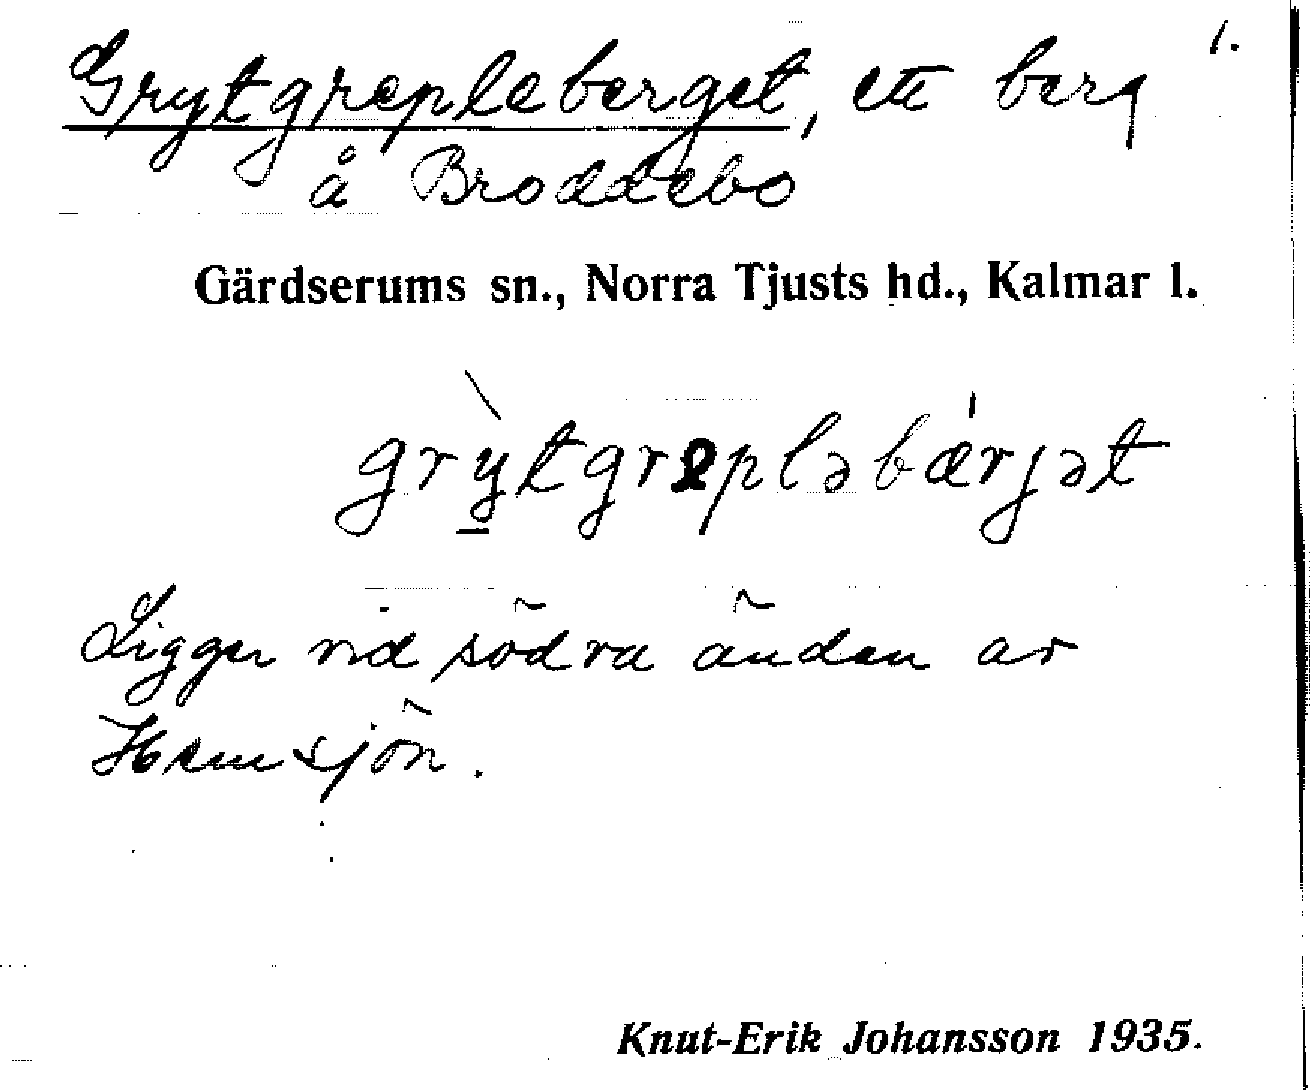 Grytgrepleberget, ett berg 1.
å Broddebo
Gärdserums sn., Norra Tjusts hd., Kalmar l.
grỳtgrepləbærjət
Ligger vid södra änden av
Hemsjön.
Knut-Erik Johansson 1935.